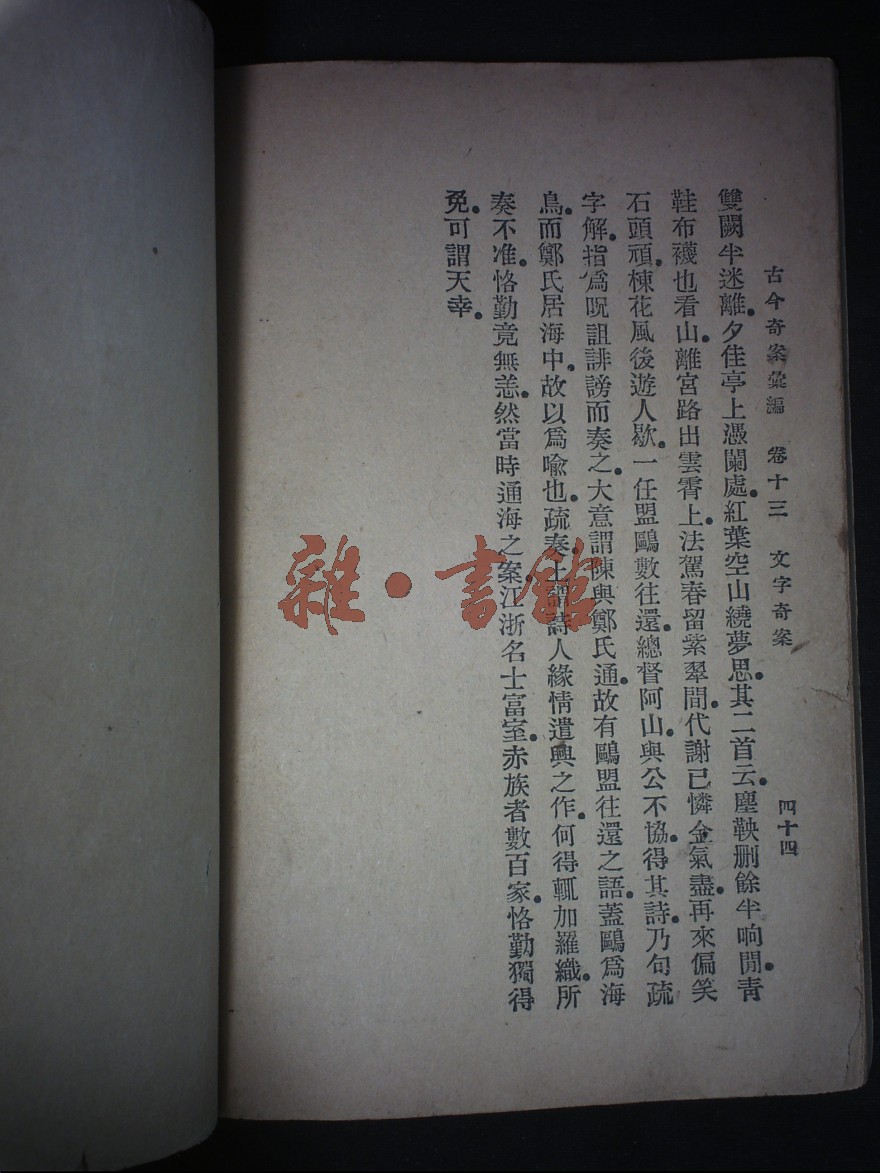 古今奇案彙編 卷十三 文字奇案 四十四
雙闕半迷離。夕佳亭上憑闌處。紅葉空山繞夢思。其二首云。塵鞅刪餘半晌閒。青
鞋布襪也看山。離宮路出雲霄上。法駕春留紫翠間。代謝已憐金氣盡。再來偏笑
石頭頑。楝花風後遊人歇。一任盟鷗數往還。總督阿山與公不協。得其詩。乃句疏
字解。指爲呪詛誹謗而奏之。大意謂陳與鄭氏通。故有鷗盟往還之語。蓋鷗爲海
鳥。而鄭氏居海中。故以爲喻也。疏奏。上謂詩人緣情遣興之作。何得輒加羅織。所
奏不准。恪勤竟無恙。然當時通海之案。江浙名士富室。赤族者數百家。恪勤獨得
免。可謂天幸。
雜·書館